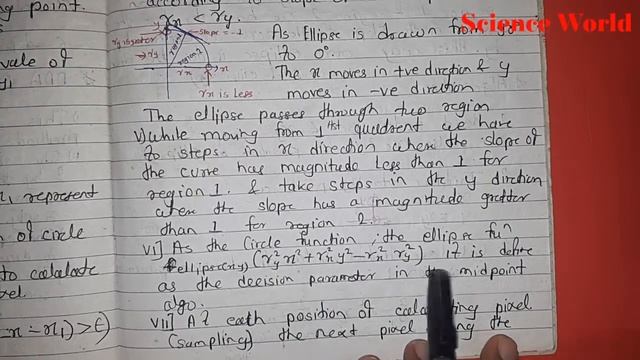 Science World
ng point.
according to
rx < ry.
y
ry is greater
slope = -1
→ ry
region 1
region 2
rx
→ x
rx is less
As Ellipse is drawn from 90
to 0°.
The x moves in +ve direction & y
moves in -ve direction
The ellipse passes through two region
V) While moving from 1st quadrent we have
to steps in x direction where the slope of
the curve has magnitude less than 1 for
region 1. & take steps in the y direction
when the slope has a magnitude gretter
than 1 for region 2.
VI] As the Circle function, the ellipse fun
fellipse(x,y) (ry²x² + rx²y² - rx² ry²). It is define
as the decision parameter in the midpoint
algo.
VII] At each position of calculating pixel
(sampling) the next pixel the
value of
represent
of circle
to calculate
el